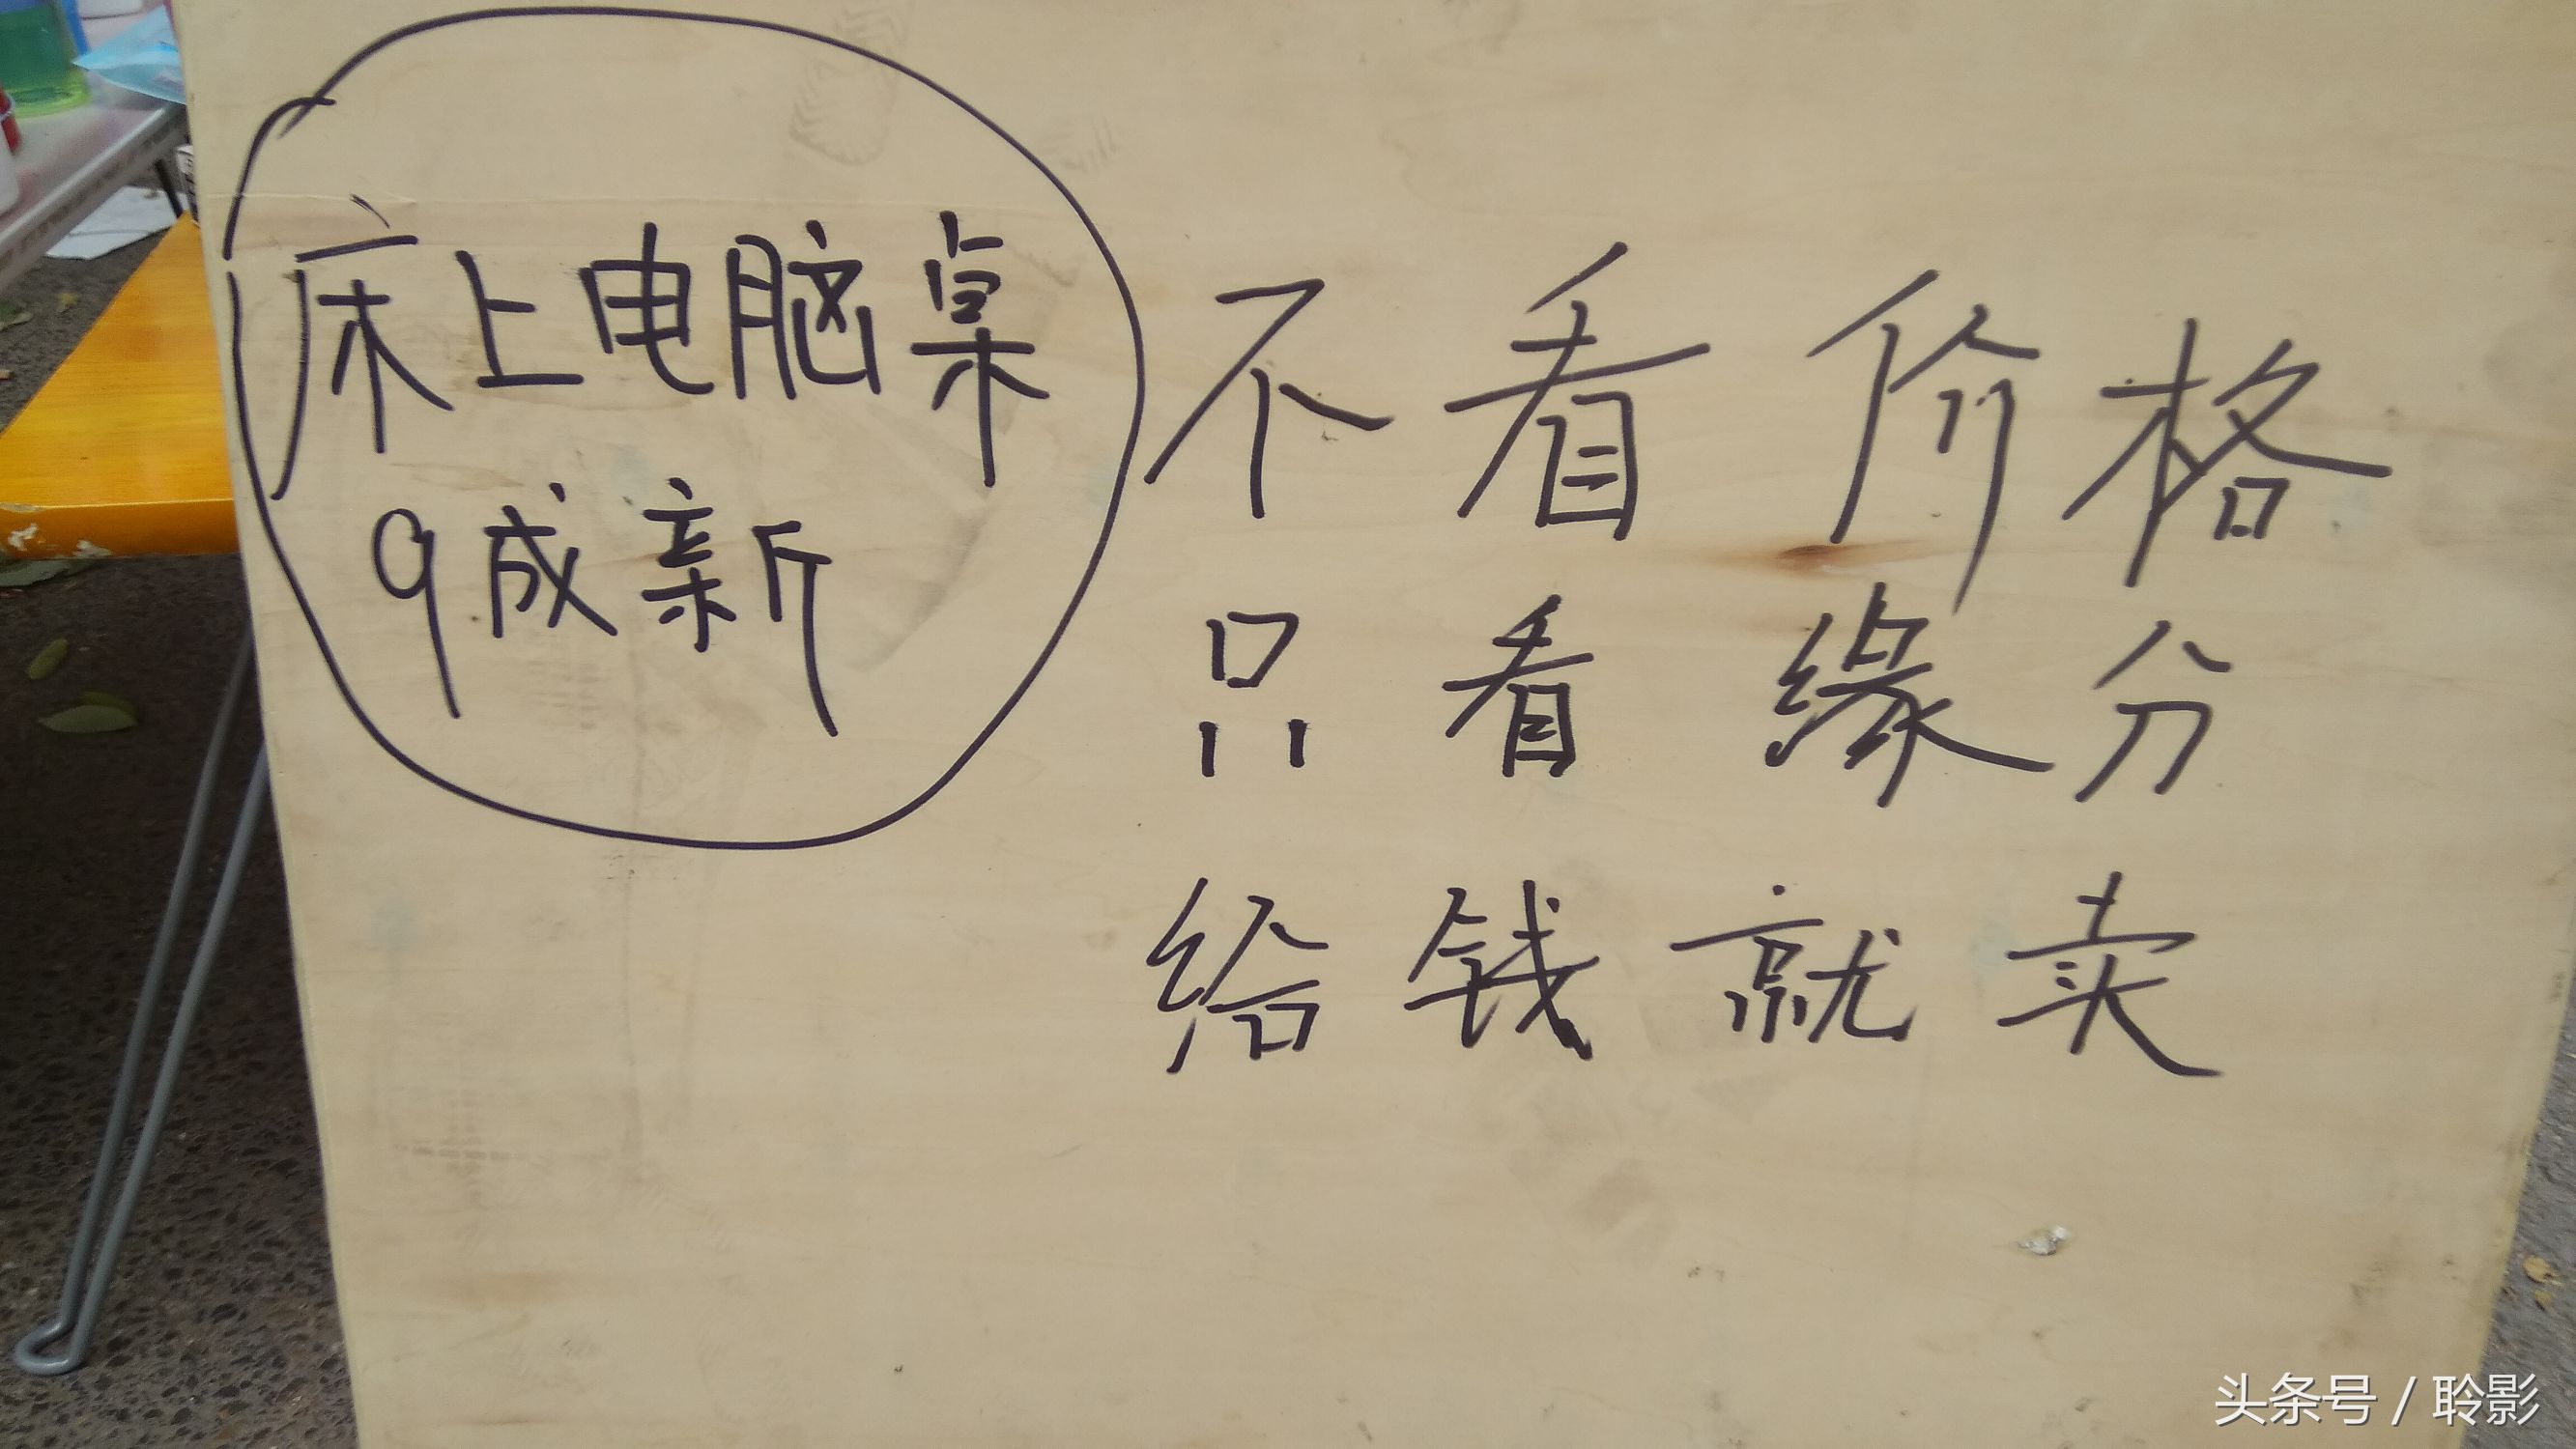 床上电脑桌
9成新
不看价格
只看缘分
给钱就卖
头条号 / 聆影